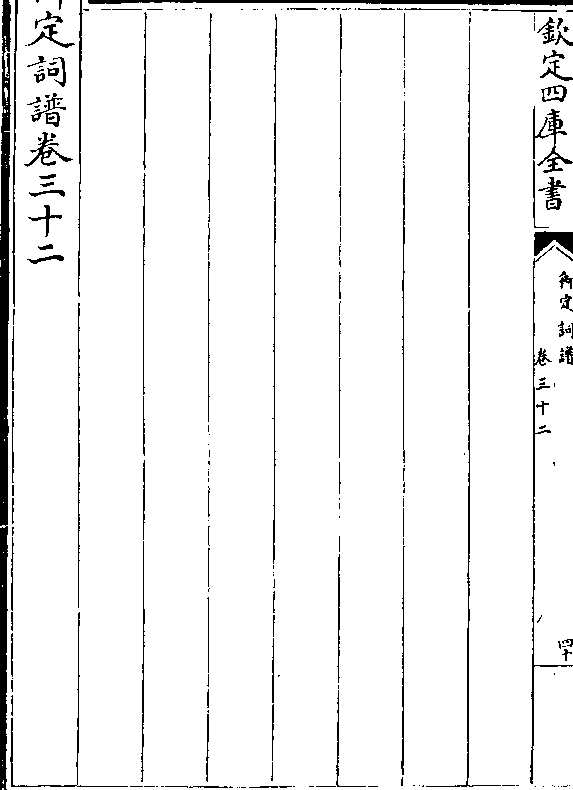 欽定四庫全書
御定詞譜
卷三十二
四十
御定詞譜卷三十二